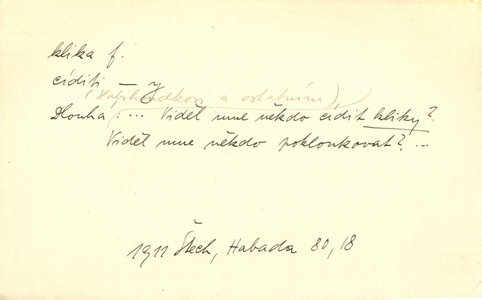 klika f.
cíditi – y
( a ostatním),
Dlouhá: ... Viděl mne někdo cídit kliky?
Viděl mne někdo poklonkovat? ...
1911 Štech, Habada 80, 18